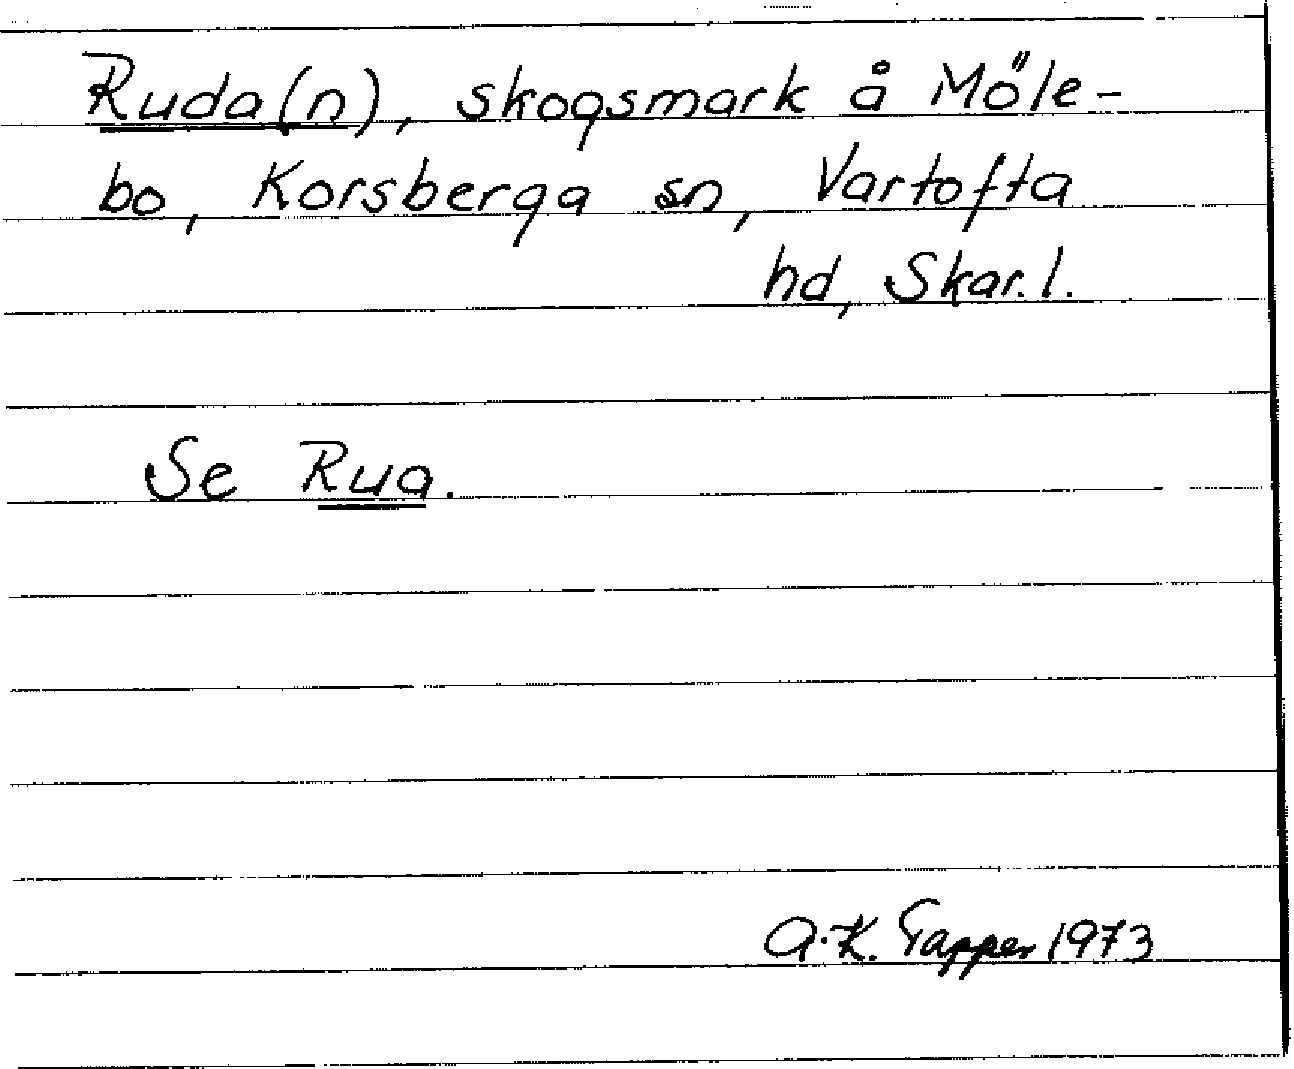 Ruda(n), skogsmark å Möle-
bo, Korsberga sn, Vartofta
hd, Skar. l.
Se Rua.
A.K. Tapper 1973